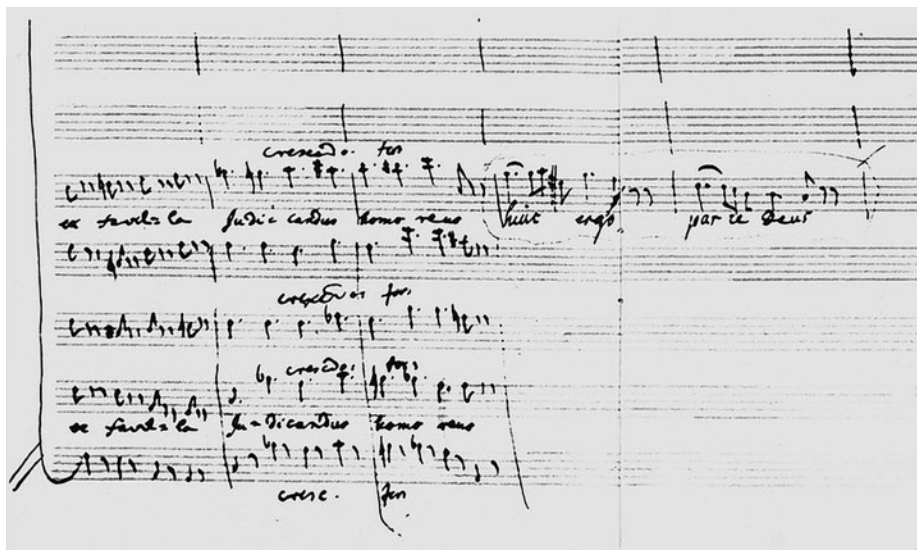 crescdo. for
ex favil=la Judic candus homo reus huic ergo parce Deus
crescdo: for:
crescdo: for:
ex favil=la Ju=dicandus homo reus
cresc. for